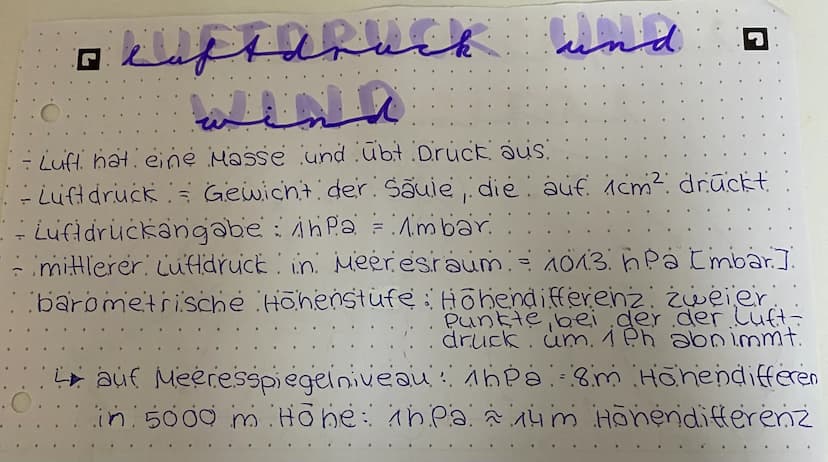 Luftdruck und
wind
- Luft hat eine Masse und übt Druck aus.
- Luftdruck = Gewicht der Säule, die auf 1cm² drückt
- Luftdruckangabe: 1hPa = 1mbar.
- mittlerer Luftdruck in Meeresraum = 1013 hPa [mbar].
barometrische Höhenstufe: Höhendifferenz zweier
Punkte, bei der der Luft-
druck um 1Ph abnimmt.
↳ auf Meeresspiegelniveau: 1hPa = 8m Höhendifferen
in 5000 m Höhe: 1hPa ≈ 14m Höhendifferenz